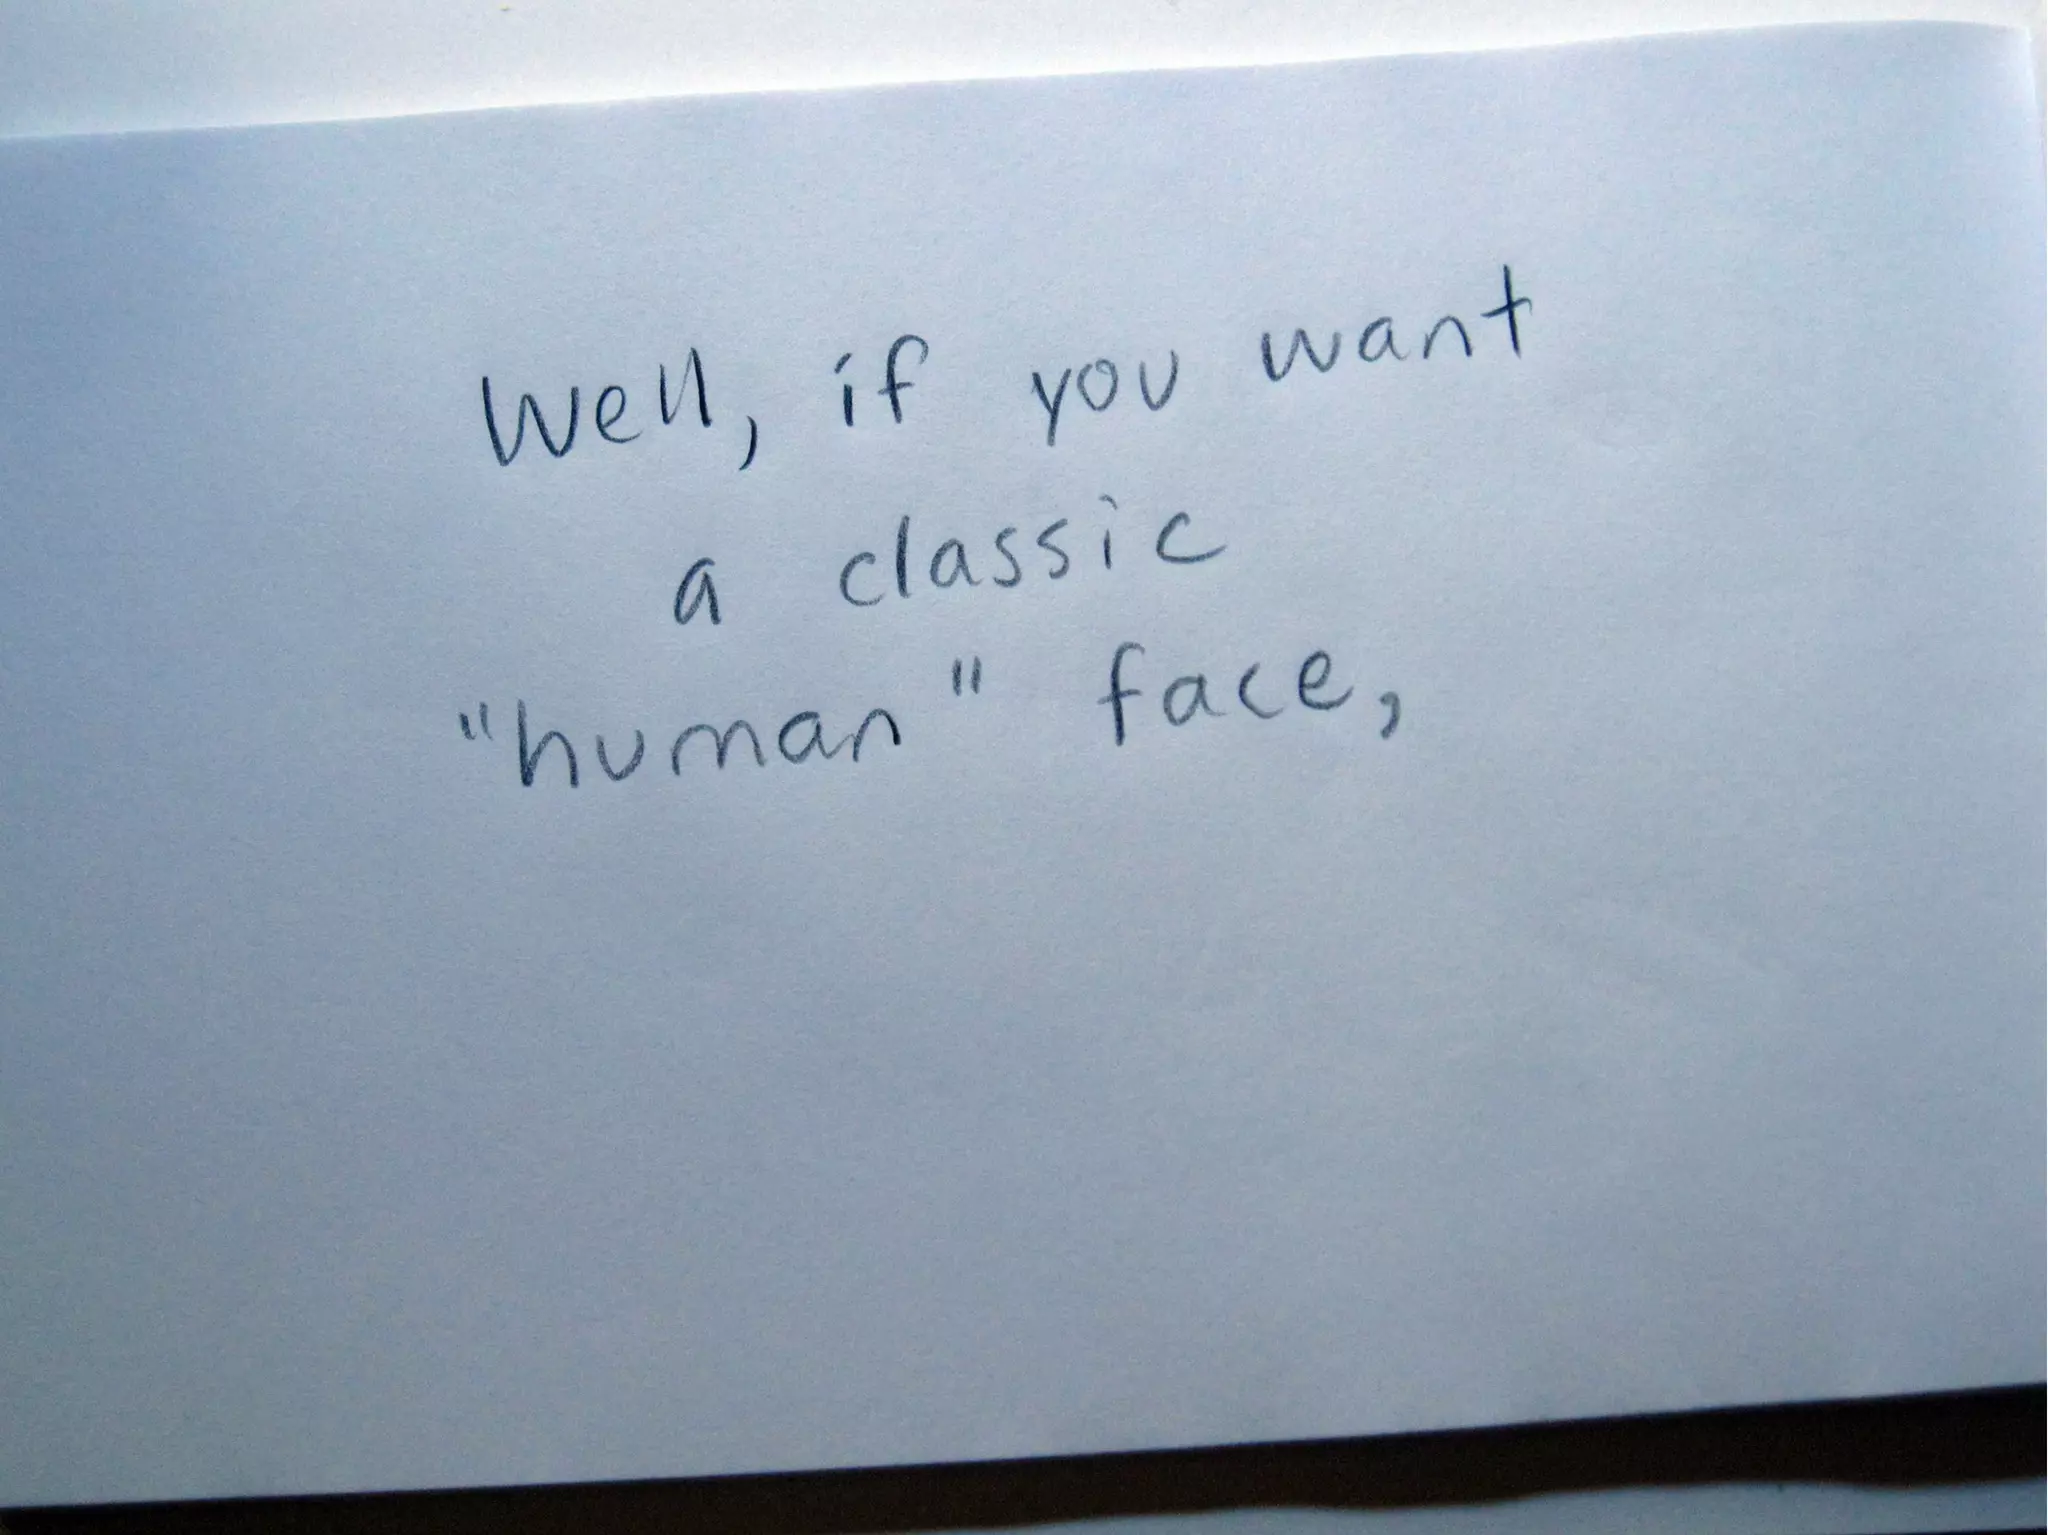 Well, if you want
a classic
"human" face,